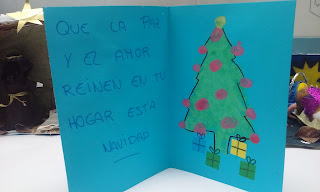 QUE LA PAZ
Y EL AMOR
REINEN EN TU
HOGAR ESTA
NAVIDAD